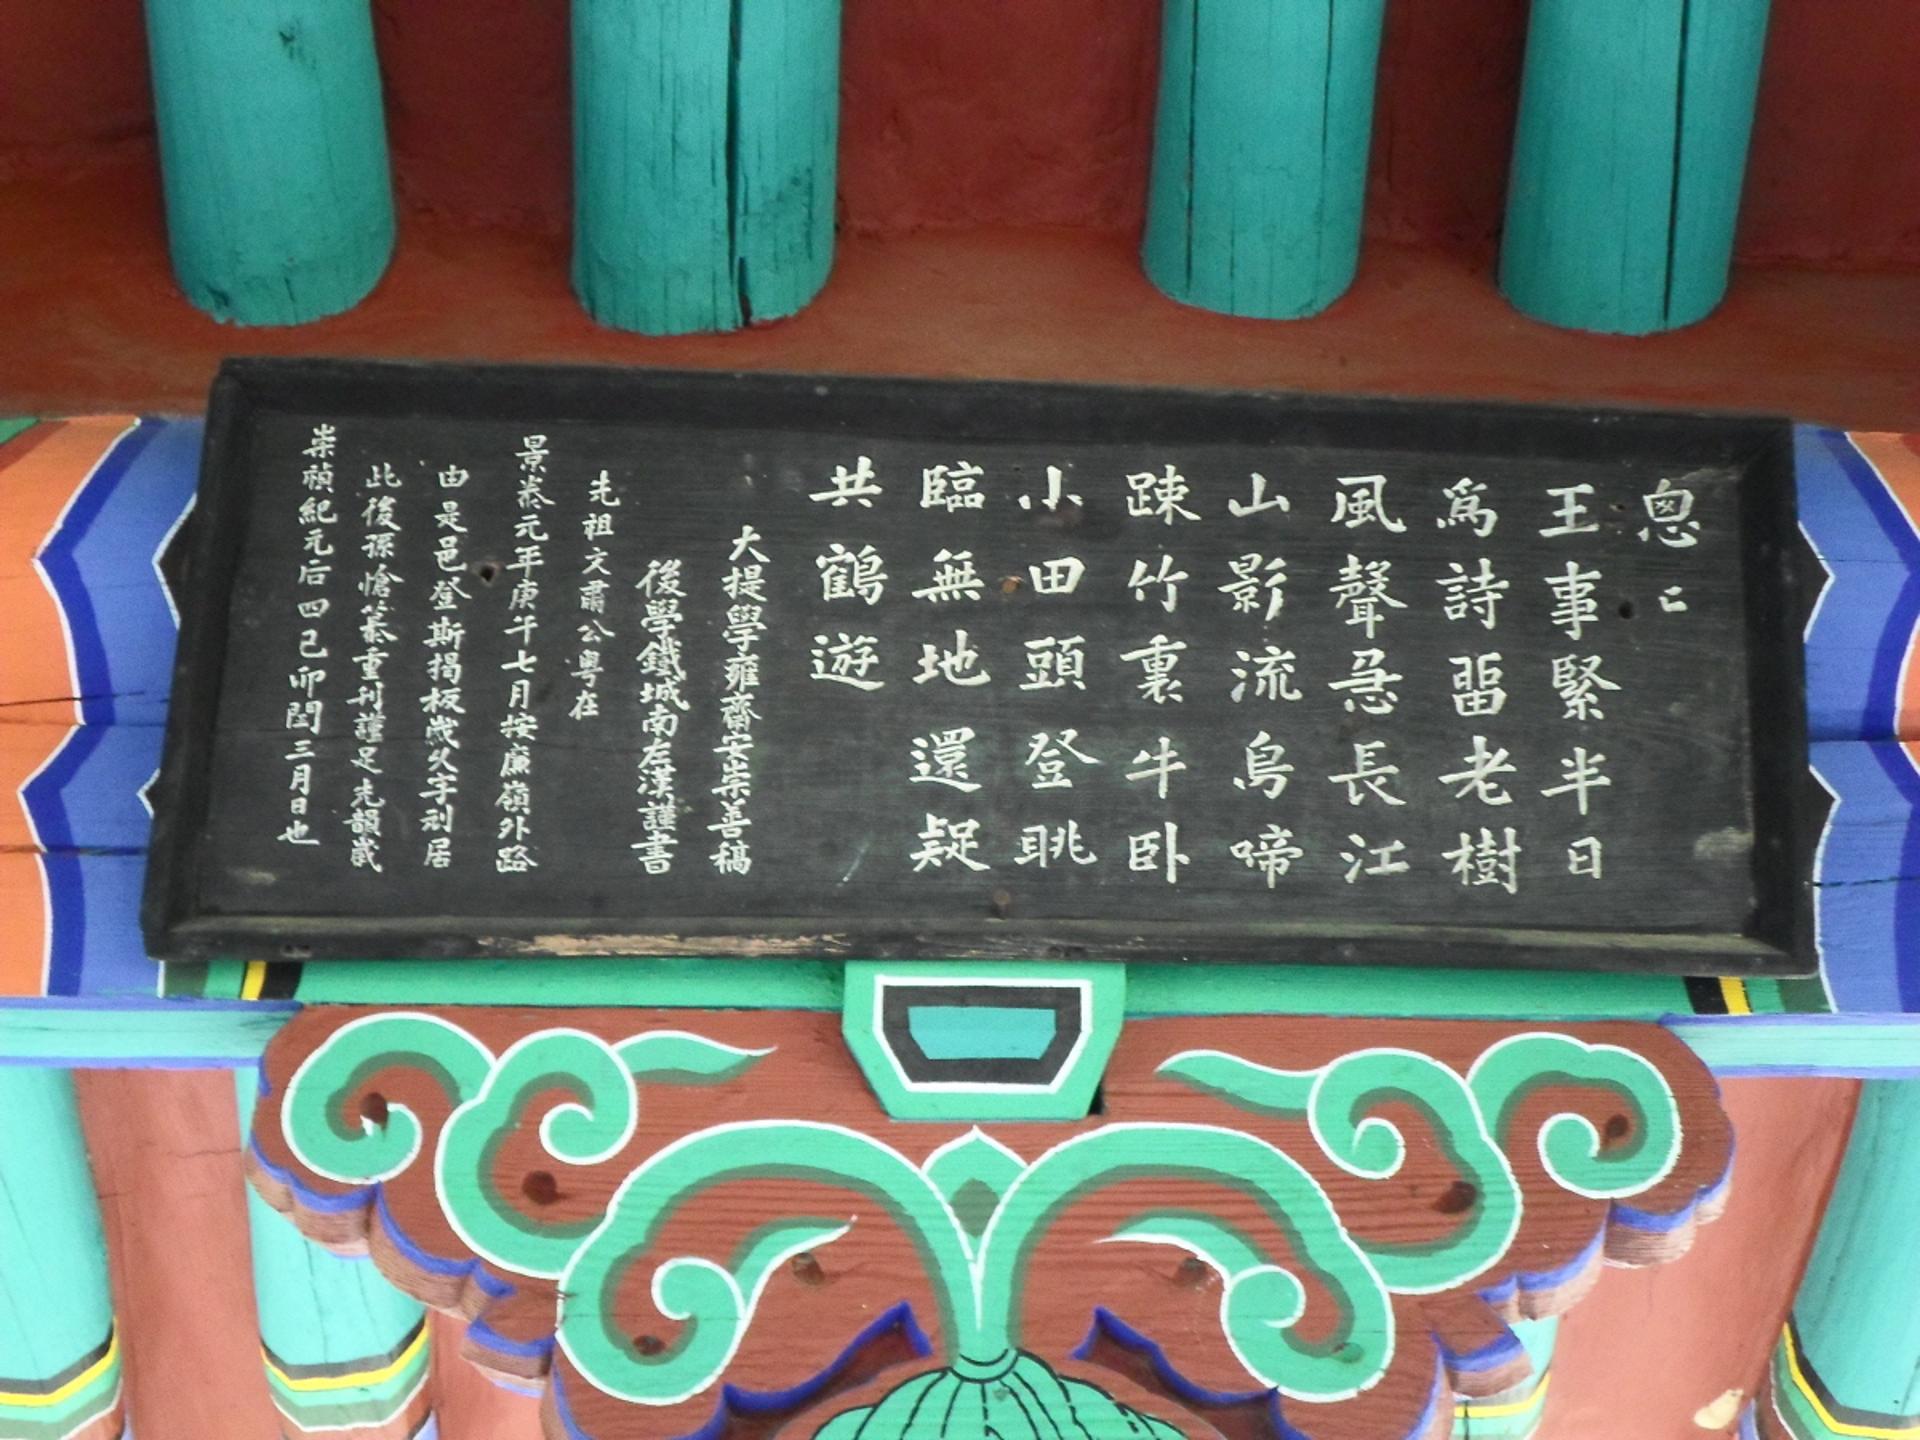 悤〻
王事緊半日
爲詩畱老樹
風聲急長江
山影流鳥啼
踈竹裏牛卧
小田頭登眺
臨無地還疑
共鶴遊
大提學雍齋安崇善稿
後學鐵城南左漢謹書
先祖文肅公粤在
景泰元年庚午七月按廉嶺外路
由是邑登斯揭板歲久字刓居
此後孫愴慕重刊謹足先韻歲
崇禎紀元后四己卯閏三月日也